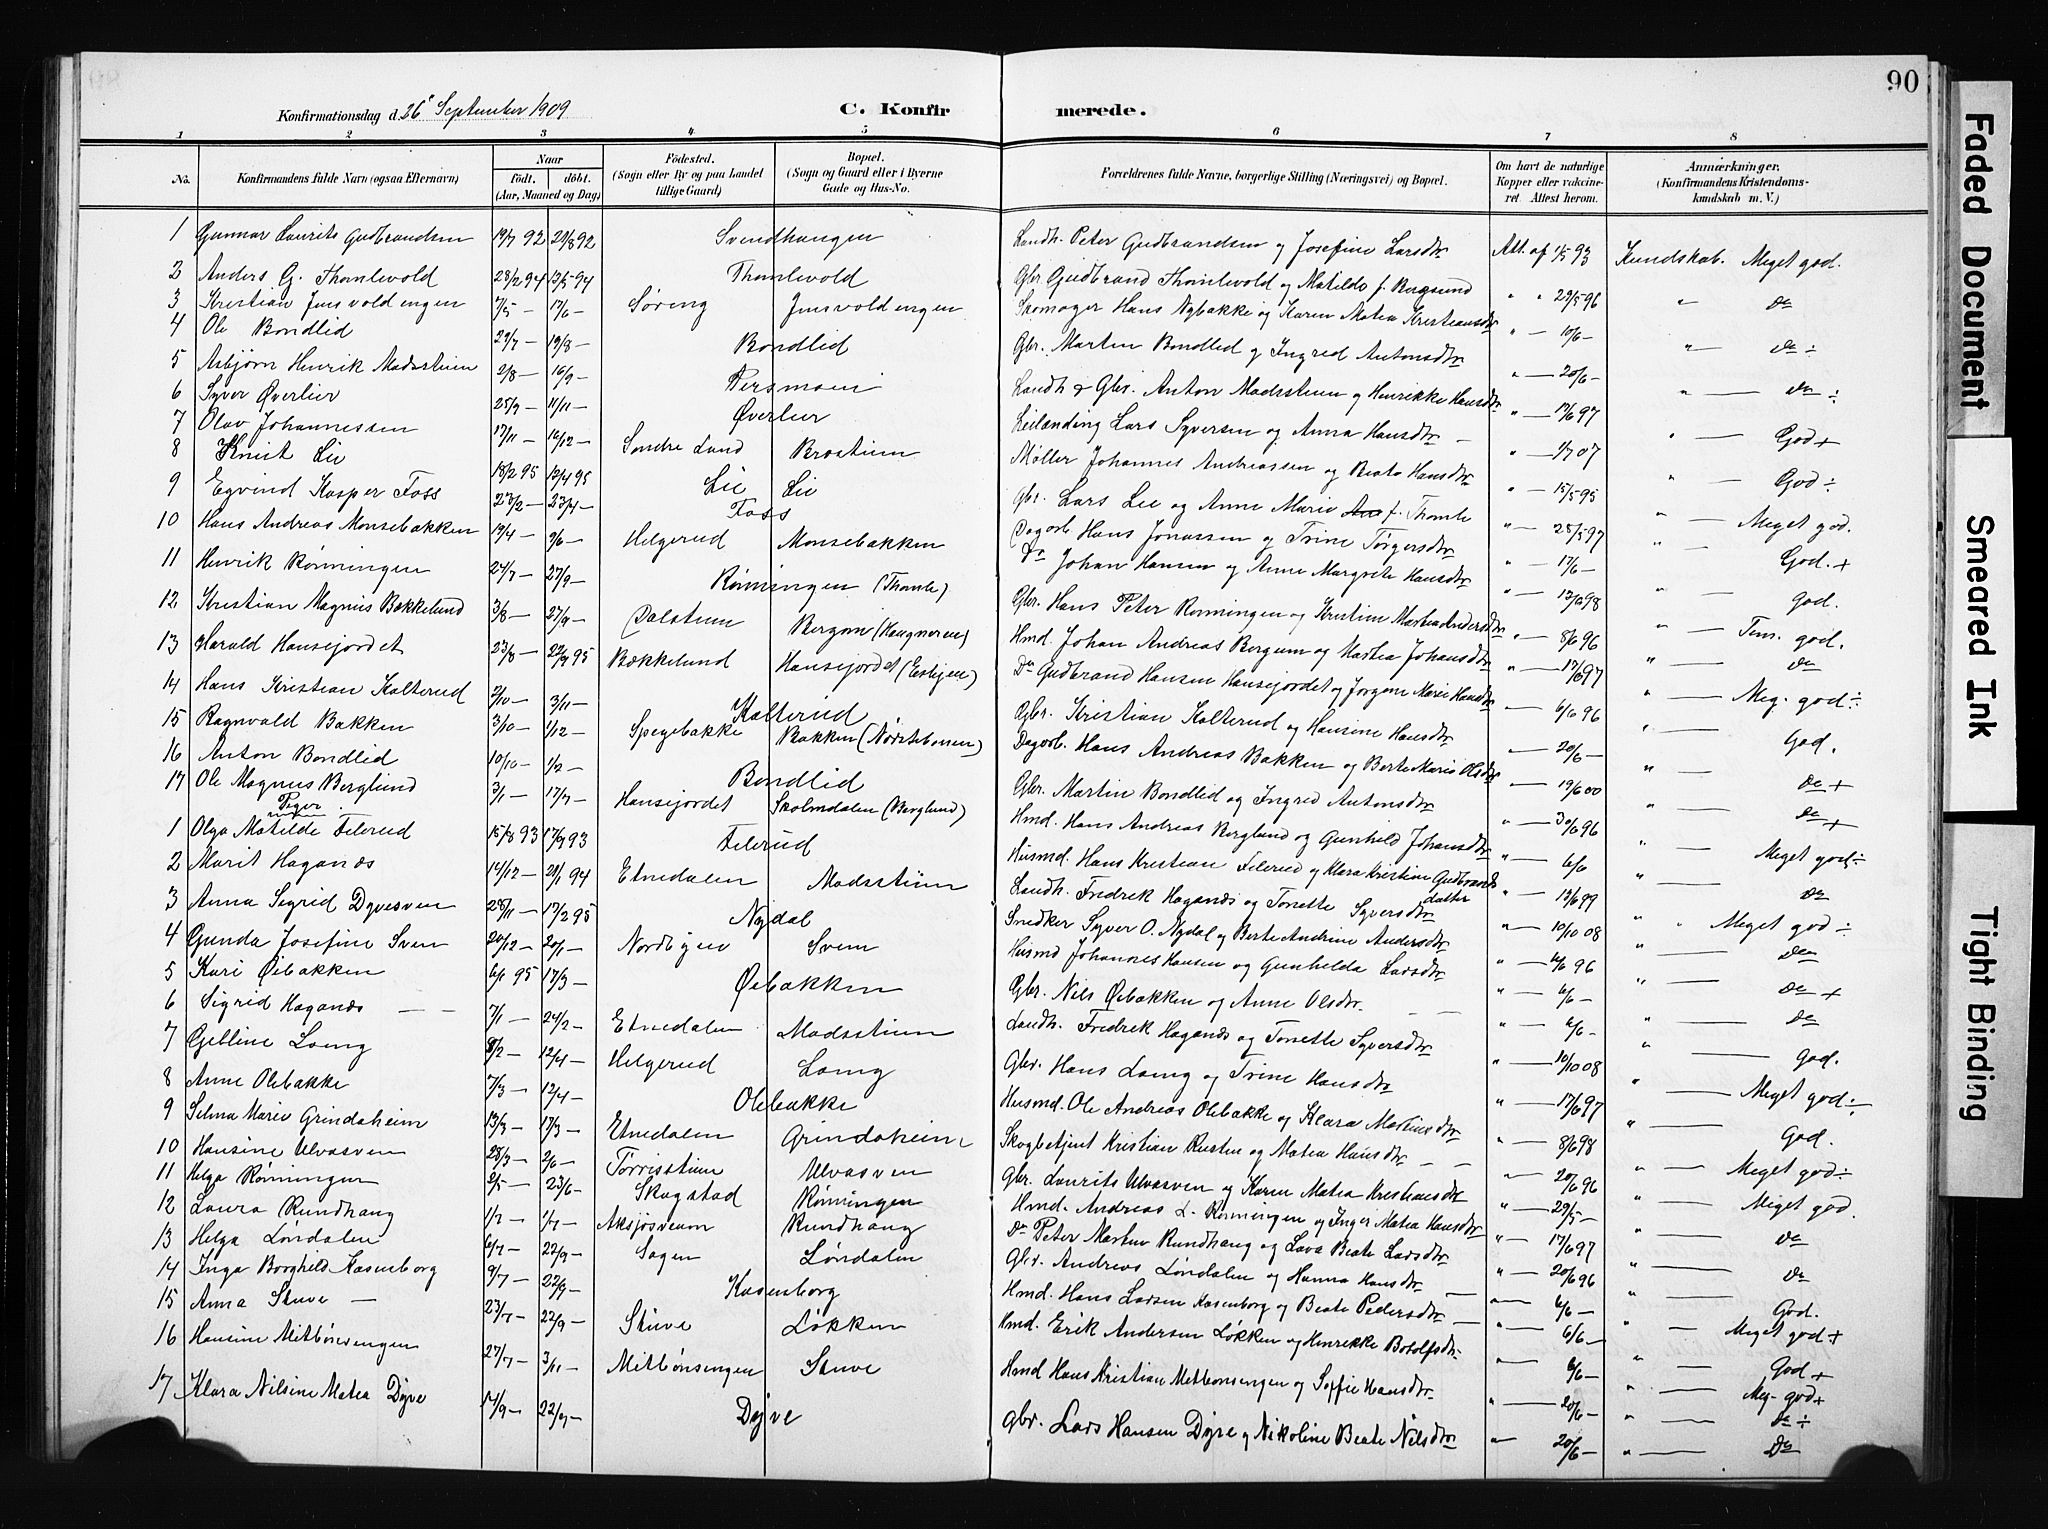 90
Konfirmationsdag d. 26' September 1909
C. Konfir merede.
1 2 3 4 5 6 7 8
No.
Konfirmandens fulde Navn (ogsaa Efternavn)
Naar
födt. döbt.
(Aar, Maaned og Dag)
Födested.
(Sogn eller By og paa Landet
tillige Gaard)
Bopæl.
(Sogn og Gaard eller i Byerne
Gade og Hus-No.
Forældrenes fulde Navne, borgerlige Stilling (Næringsvei) og Bopæl.
Om havt de naturlige
Kopper eller vakcine-
ret. Attest herom.
Anmærkninger.
(Konfirmandens Kristendoms-
kundskab m. V.)
1 Gunnar Laurits Gudbrandsen 19/7 92 21/8 92 Svendhaugen Landh. Peter Gudbrandsen og Josefine Larsdtr Att. af 1/5 93 Kundskab. Meget god.
2 Anders G. Thomlevold 28/2 94 13/5 94 Thomlevold Gbr. Gudbrand Thomlevold og Matilde f. Bergsund " " 29/5 96 " Do
3 Kristian Jensvoldengen 7/5 17/6 — Søreng Jensvoldengen Skomager Hans Nybakke og Karen Matea Kristiansdtr " — 10/6 — " — Do ÷
4 Ole Bondlid 22/7 — 19/8 — Bondlid Gbr. Martin Bondlid og Ingrid Antonsdtr " — 20/6 — " — Do ÷
5 Asbjørn Henrik Madsstuen 2/8 — 16/9 — Persmoen Landh & Gbr. Anton Madsstuen og Henrikke Hansdtr " — 17/6 97 " — God +
6 Syver Øverlier 25/9 — 11/11 — Øverlier Leilænding Lars Syversen og Anna Hansdtr — " — 1/7 07 " — God ÷
7 Olav Johannessen 17/11 — 16/12 — Søndre Land Brostuen Møller Johannes Andreassen og Beate Hansdtr " — 15/5 95 " — Meget god.
8 Knut Lie 18/2 95 12/4 95 Lie Lie Gbr. Lars Lie og Anne Marie f. Thomle " — 25/5 97 " — God. +
9 Eyvind Kasper Foss 23/2 — 23/4 — Foss Dagarb. Hans Jonassen og Trine Torgersdtr " — 17/6 — " — God.
10 Hans Andreas Monsebakken 19/4 — 2/6 — Helgerud Monsebakken Do Johan Hansen og Anne Margrete Hansdtr " — 17/6 98 " — Tem. god.
11 Henrik Rønningen 24/7 — 27/9 — Rønningen (Thomle) Gbr. Hans Peter Rønningen og Kristine Martea Andersdtr " — 8/6 96 " — Do
12 Kristian Magnus Bækkelund 3/8 — 27/9 — Dalstuen Bergom (Haugneren) Hmd. Johan Andreas Bergum og Martea Johansdtr " — 17/6 97 " — Meg. god ÷
13 Harald Hansejordet 23/8 — 22/9 95 Bækkelund Hansejordet Do Gudbrand Hansen Hansejordet og Jørgine Marie Hansdtr " — 6/6 96 " — God.
14 Hans Kristian Kalterud 2/10 — 3/11 — Kalterud Gbr. Kristian Kalterud og Hansine Hansdtr — 20/6 — " — Do +
15 Ragnvald Bakken 3/10 — 1/12 — Spegebakke Bakken Dagarb. Hans Andreas Bakken og Berte Marie Olsdtr — 19/6 00 " — Do +
16 Anton Bondlid 10/10 — 1/2 — Bondlid Gbr. Martin Bondlid og Ingrid Antonsdtr " — 30/6 96 " — Meget god ÷
17 Ole Magnus Berglund 3/1 — 17/7 — Hansejordet Skolmdalen (Berglund) Hmd. Hans Andreas Berglund og Gunhild Johansdtr " — 6/6 " — Do
Piger
1 Olga Matilde Felerud 15/8 93 17/9 93 Felerud Husmd. Hans Kristian Felerud og Klara Kristine Gudbrands datter " — 13/6 99 " " Meget god ÷
2 Marit Haganæs 14/12 — 21/1 94 Etnedalen Madsstuen Landh. Fredrik Haganæs og Tonette Syversdtr " — 10/10 08 " — Do
3 Anna Sigrid Dyvesven 28/11 — 17/2 95 Nydal Snedker Syver O. Nydal og Berte Andrine Andersdtr " — 6/6 96 " — Do +
4 Gunda Josefine Sven 20/12 — 20/1 — Nordbyen Sven Husmd Johannes Hansen og Gunhilda Larsdtr " — 6/6 — " — Do
5 Kari Øibakken 6/1 95 17/3 — Øibakken Gbr. Nils Øibakken og Anne Olsdtr. — — " — 6/6 — " — God.
6 Sigrid Haganæs — — 7/1 — 24/2 — Etnedalen Madsstuen Landh. Fredrik Haganæs og Tonette Syversdtr " — 10/10 08 " — Meget god ÷
7 Gebline Laeng 8/2 — 12/4 — Helgerud Laeng Gbr. Hans Laeng og Trine Hansdtr " — 17/6 97 " — God.
8 Anne Olebakke 7/3 — 12/4 — Olebakke Husmd. Ole Andreas Olebakke og Klara Martinsdtr " — 8/6 98 " — Meget god ÷
9 Selma Marie Grindaheim 13/3 — 17/3 — Etnedalen Grindaheim Skogbetjent Kristian Rusten og Matea Hansdtr — — " — 20/6 96 " — Meget god.
10 Hansine Ulvasven 28/3 — 2/6 — Torrisstuen Ulvasven Gbr. Laurits Ulvasven og Karen Matea Kristiansdtr " — 29/5 — " — Do
11 Helga Rønningen 2/5 — 23/6 — Skogstad Rønningen Hmd. Andreas L. Rønningen og Inger Matea Hansdtr " — 17/6 97 " — Do
12 Laura Rundhaug 1/7 — 1/7 — Aksjøsveen Rundhaug Do Peter Martin Rundhaug og Lava Beate Larsdtr " — 20/6 96 " — God.
13 Helga Løndalen 6/7 — 22/9 — Sagen Løndalen Gbr. Andreas Løndalen og Hanna Hansdtr — " — 6/6 — " — Meget god +
14 Inga Borghild Kasenborg 9/7 — 22/9 — Kasenborg Hmd. Hans Larsen Kasenborg og Beate Pedersdtr — " — 6/6 — " — God +
15 Anna Stuve — 23/7 — 22/9 — Stuve Løkken Hmd. Erik Andersen Løkken og Henrikke Botolfsdtr " — 6/6 — " — Meg. god +
16 Hansine Mitbønsengen 27/7 — 3/11 — Mitbønsengen Stuve Hmd Hans Kristian Mitbønsengen og Soffie Hansdtr " — 20/6 — " — Do ÷
17 Klara Nilsine Matea Dyve 14/9 — 22/9 — Dyve Gbr. Lars Hansen Dyve og Nikoline Beate Nilsdtr " — 20/6 — " — Do
Faded Document
Smeared Ink
Tight Binding